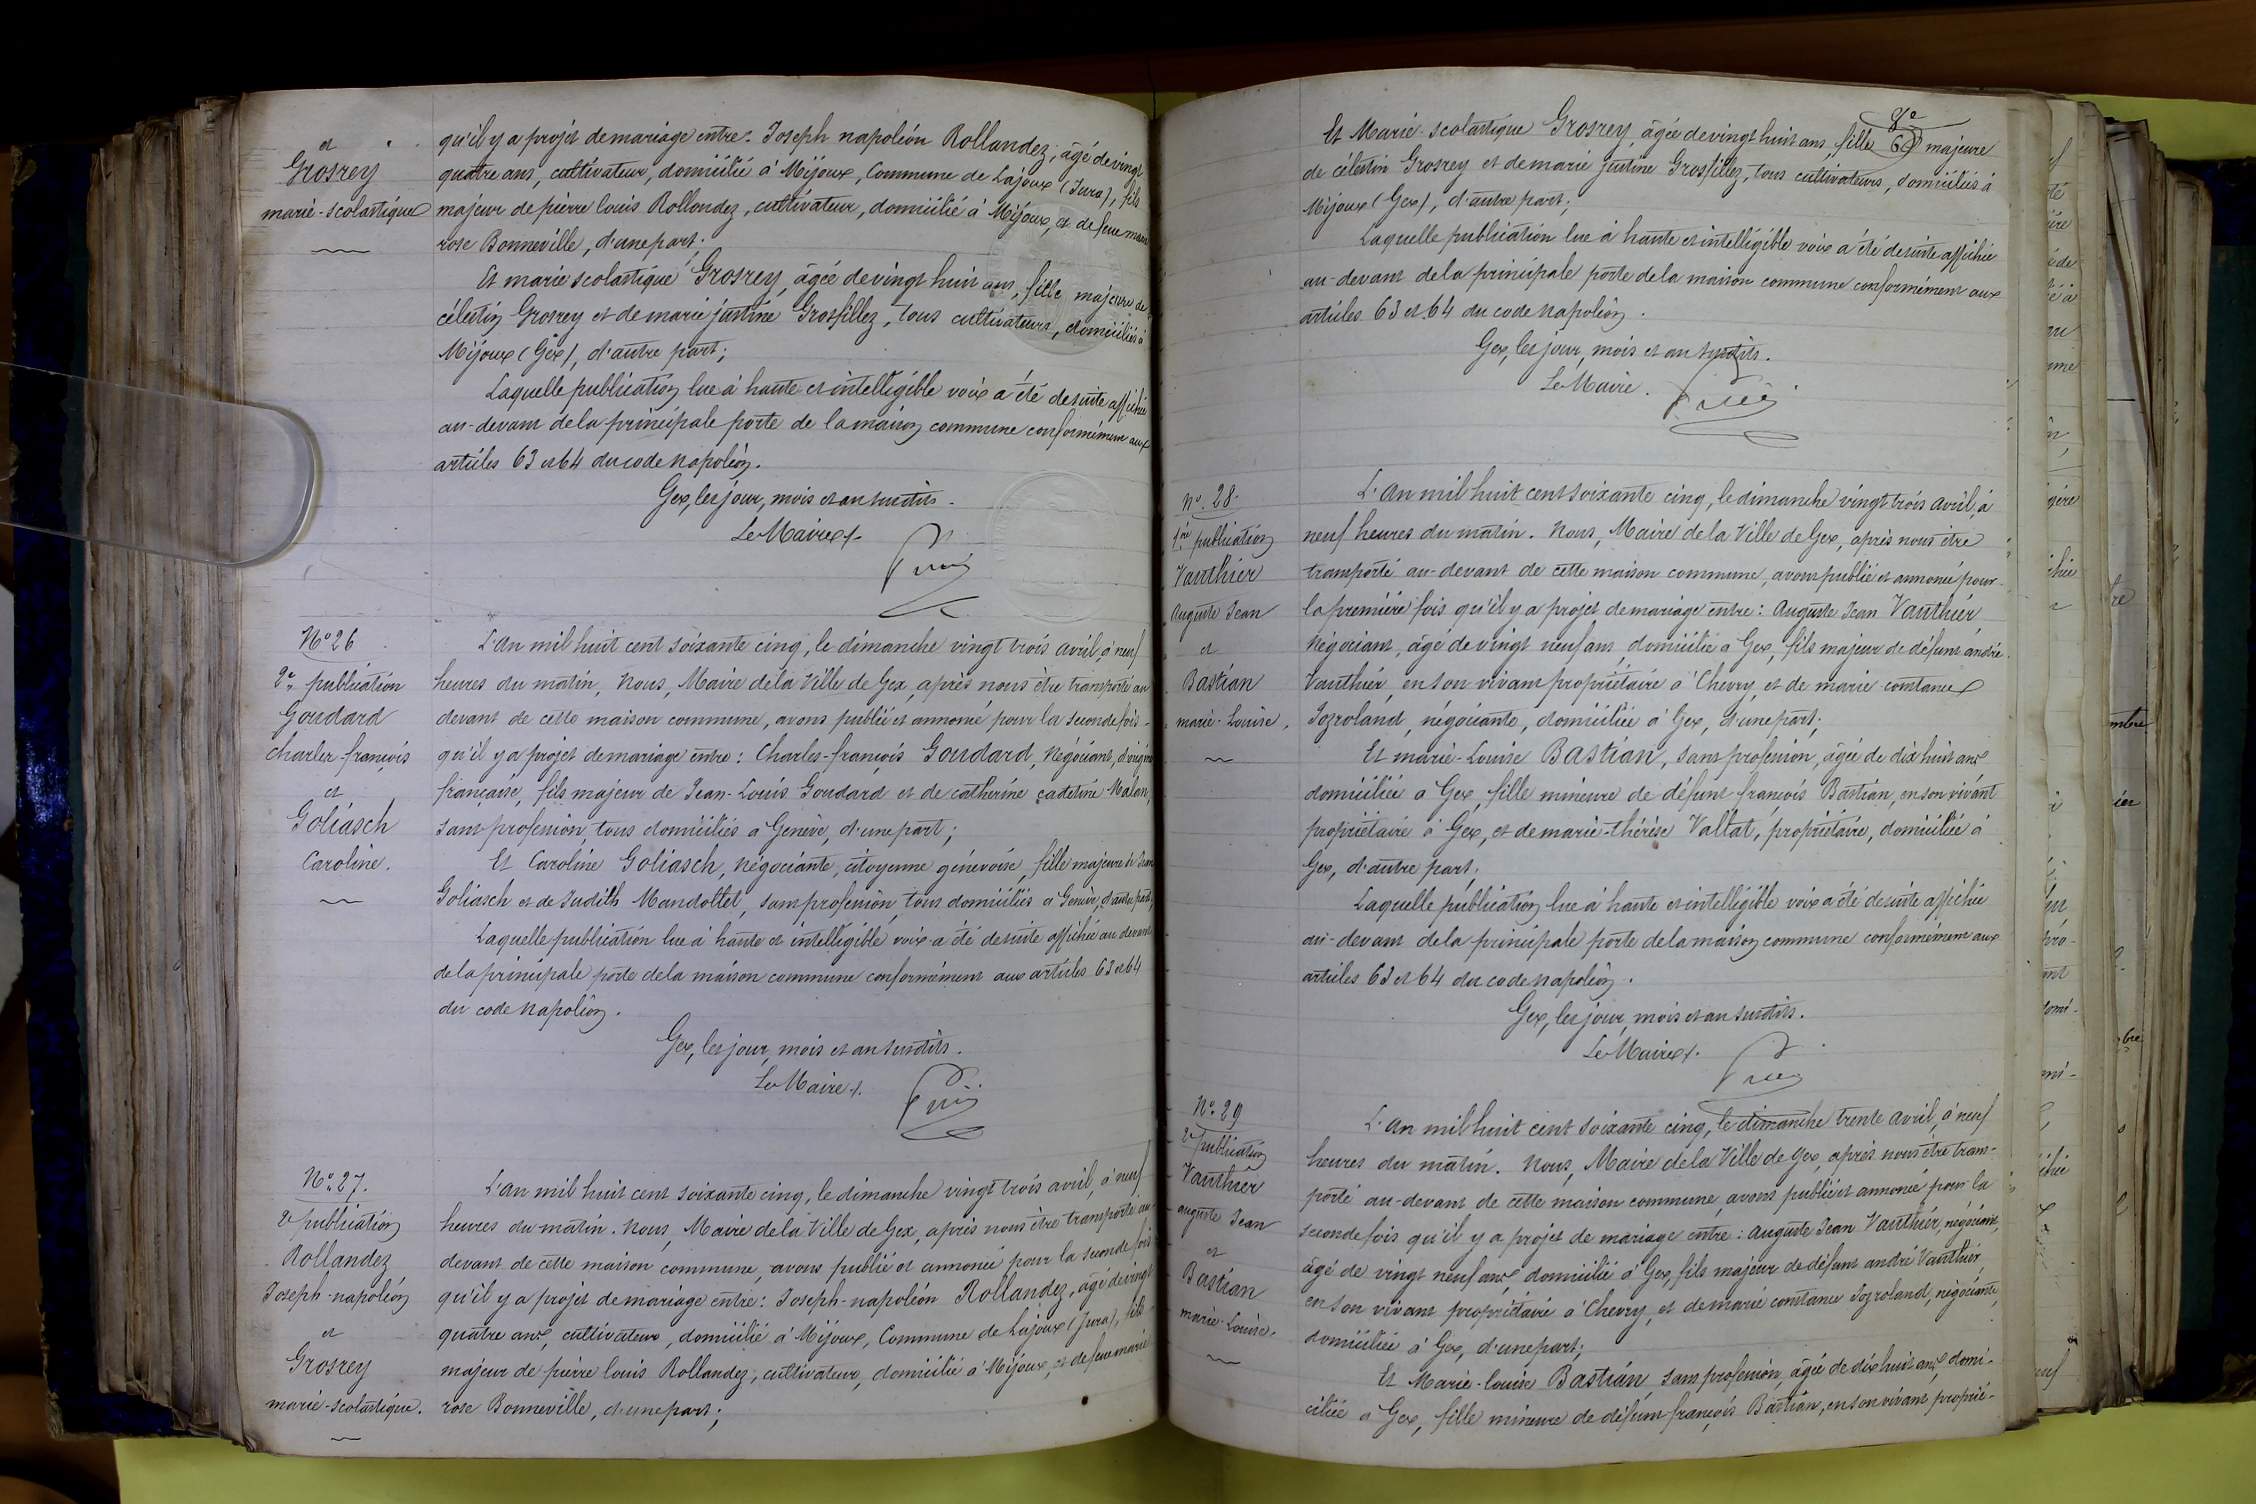 et
Grosrey
marie-scolastique
qu'il y a projet de mariage entre: Joseph napoléon Rollandez, âgé de vingt
quatre ans, cultivateur, domicilié à Mijoux, Commune de Lajoux (Jura), fils
majeur de pierre louis Rollandez, cultivateur, domicilié à Mijoux, et de feue marie
rose Bonneville, d'une part;
Et marie scolastique Grosrey, âgée de vingt huit ans, fille majeure de
célestin Grosrey et de marie justine Grosfillez, tous cultivateurs, domiciliés à
Mijoux (Gex), d'autre part;
Laquelle publication lue à haute et intelligible voix a été de suite affichée
au-devant de la principale porte de la maison commune conformément aux
articles 63 et 64 du code napoléon.
Gex, les jour, mois et an susdits.
Le Maire
N° 26
2e publication
Goudard
charles-françois
et
Goliasch
Caroline.
L'An mil huit cent soixante cinq, le dimanche vingt trois avril, à neuf
heures du matin, Nous, Maire de la Ville de Gex, après nous être transporté au
devant de cette maison commune, avons publié et annoncé pour la seconde fois
qu'il y a projet de mariage entre: Charles-françois Goudard, Négociant, d'origine
française, fils majeur de Jean-Louis Goudard et de catherine Malan,
sans profession, tous domiciliés à Genève, d'une part;
Et Caroline Goliasch, négociante, citoyenne génevoise, fille majeure de Jean
Goliasch et de Judith Mandottet, sans profession, tous domiciliés à Genève, d'autre part,
Laquelle publication lue à haute et intelligible voix a été de suite affichée au devant
de la principale porte de la maison commune conformément aux articles 63 et 64
du code napoléon.
Gex, les jour, mois et an susdits.
Le Maire
N° 27.
2e publication
Rollandez
Joseph-napoléon
et
Grosrey
marie-scolastique.
L'An mil huit cent soixante cinq, le dimanche vingt trois avril, à neuf
heures du matin. Nous, Maire de la Ville de Gex, après nous être transporté au-
devant de cette maison commune, avons publié et annoncé pour la seconde fois
qu'il y a projet de mariage entre: Joseph-napoléon Rollandez, âgé de vingt
quatre ans, cultivateur, domicilié à Mijoux, Commune de Lajoux (Jura), fils
majeur de pierre louis Rollandez, cultivateur, domicilié à Mijoux, et de feue marie
rose Bonneville, d'une part;
Et Marie-scolastique Grosrey, âgée de vingt huit ans, fille majeure
de célestin Grosrey et de marie justine Grosfillez, tous cultivateurs, domiciliés à
Mijoux (Gex), d'autre part;
Laquelle publication lue à haute et intelligible voix a été de suite affichée
au-devant de la principale porte de la maison commune conformément aux
articles 63 et 64 du code napoléon.
Gex, les jour, mois et an susdits.
Le Maire.
N° 28.
1ère publication
Vauthier
Auguste Jean
et
Bastian
marie-Louise.
L'An mil huit cent soixante cinq, le dimanche vingt trois avril, à
neuf heures du matin. Nous, Maire de la Ville de Gex, après nous être
transporté au-devant de cette maison commune, avons publié et annoncé pour
la première fois qu'il y a projet de mariage entre: Auguste Jean Vauthier
Négociant, âgé de vingt neuf ans, domicilié à Gex, fils majeur de défunt andré
Vauthier, en son vivant propriétaire à Chevry, et de marie constance
Jozroland, négociante, domiciliée à Gex, d'une part;
Et marie-Louise Bastian, sans profession, âgée de dix huit ans
domiciliée à Gex, fille mineure de défunt françois Bastian, en son vivant
propriétaire à Gex, et de marie-thérèse Vallat, propriétaire, domiciliée à
Gex, d'autre part;
Laquelle publication lue à haute et intelligible voix a été de suite affichée
au-devant de la principale porte de la maison commune conformément aux
articles 63 et 64 du code napoléon.
Gex, les jour, mois et an susdits.
Le Maire
N° 29
2e publication
Vauthier
auguste Jean
et
Bastian
marie-Louise.
L'An mil huit cent soixante cinq, le dimanche trente avril, à neuf
heures du matin. Nous, Maire de la Ville de Gex, après nous être trans-
porté au-devant de cette maison commune, avons publié et annoncé pour la
seconde fois qu'il y a projet de mariage entre: auguste Jean Vauthier, négociant,
âgé de vingt neuf ans, domicilié à Gex, fils majeur de défunt andré Vauthier,
en son vivant propriétaire à Chevry, et de marie constance Jozroland, négociante,
domiciliée à Gex, d'une part;
Et Marie-louise Bastian, sans profession, âgée de dix huit ans, domi-
ciliée à Gex, fille mineure de défunt françois Bastian, en son vivant proprié-